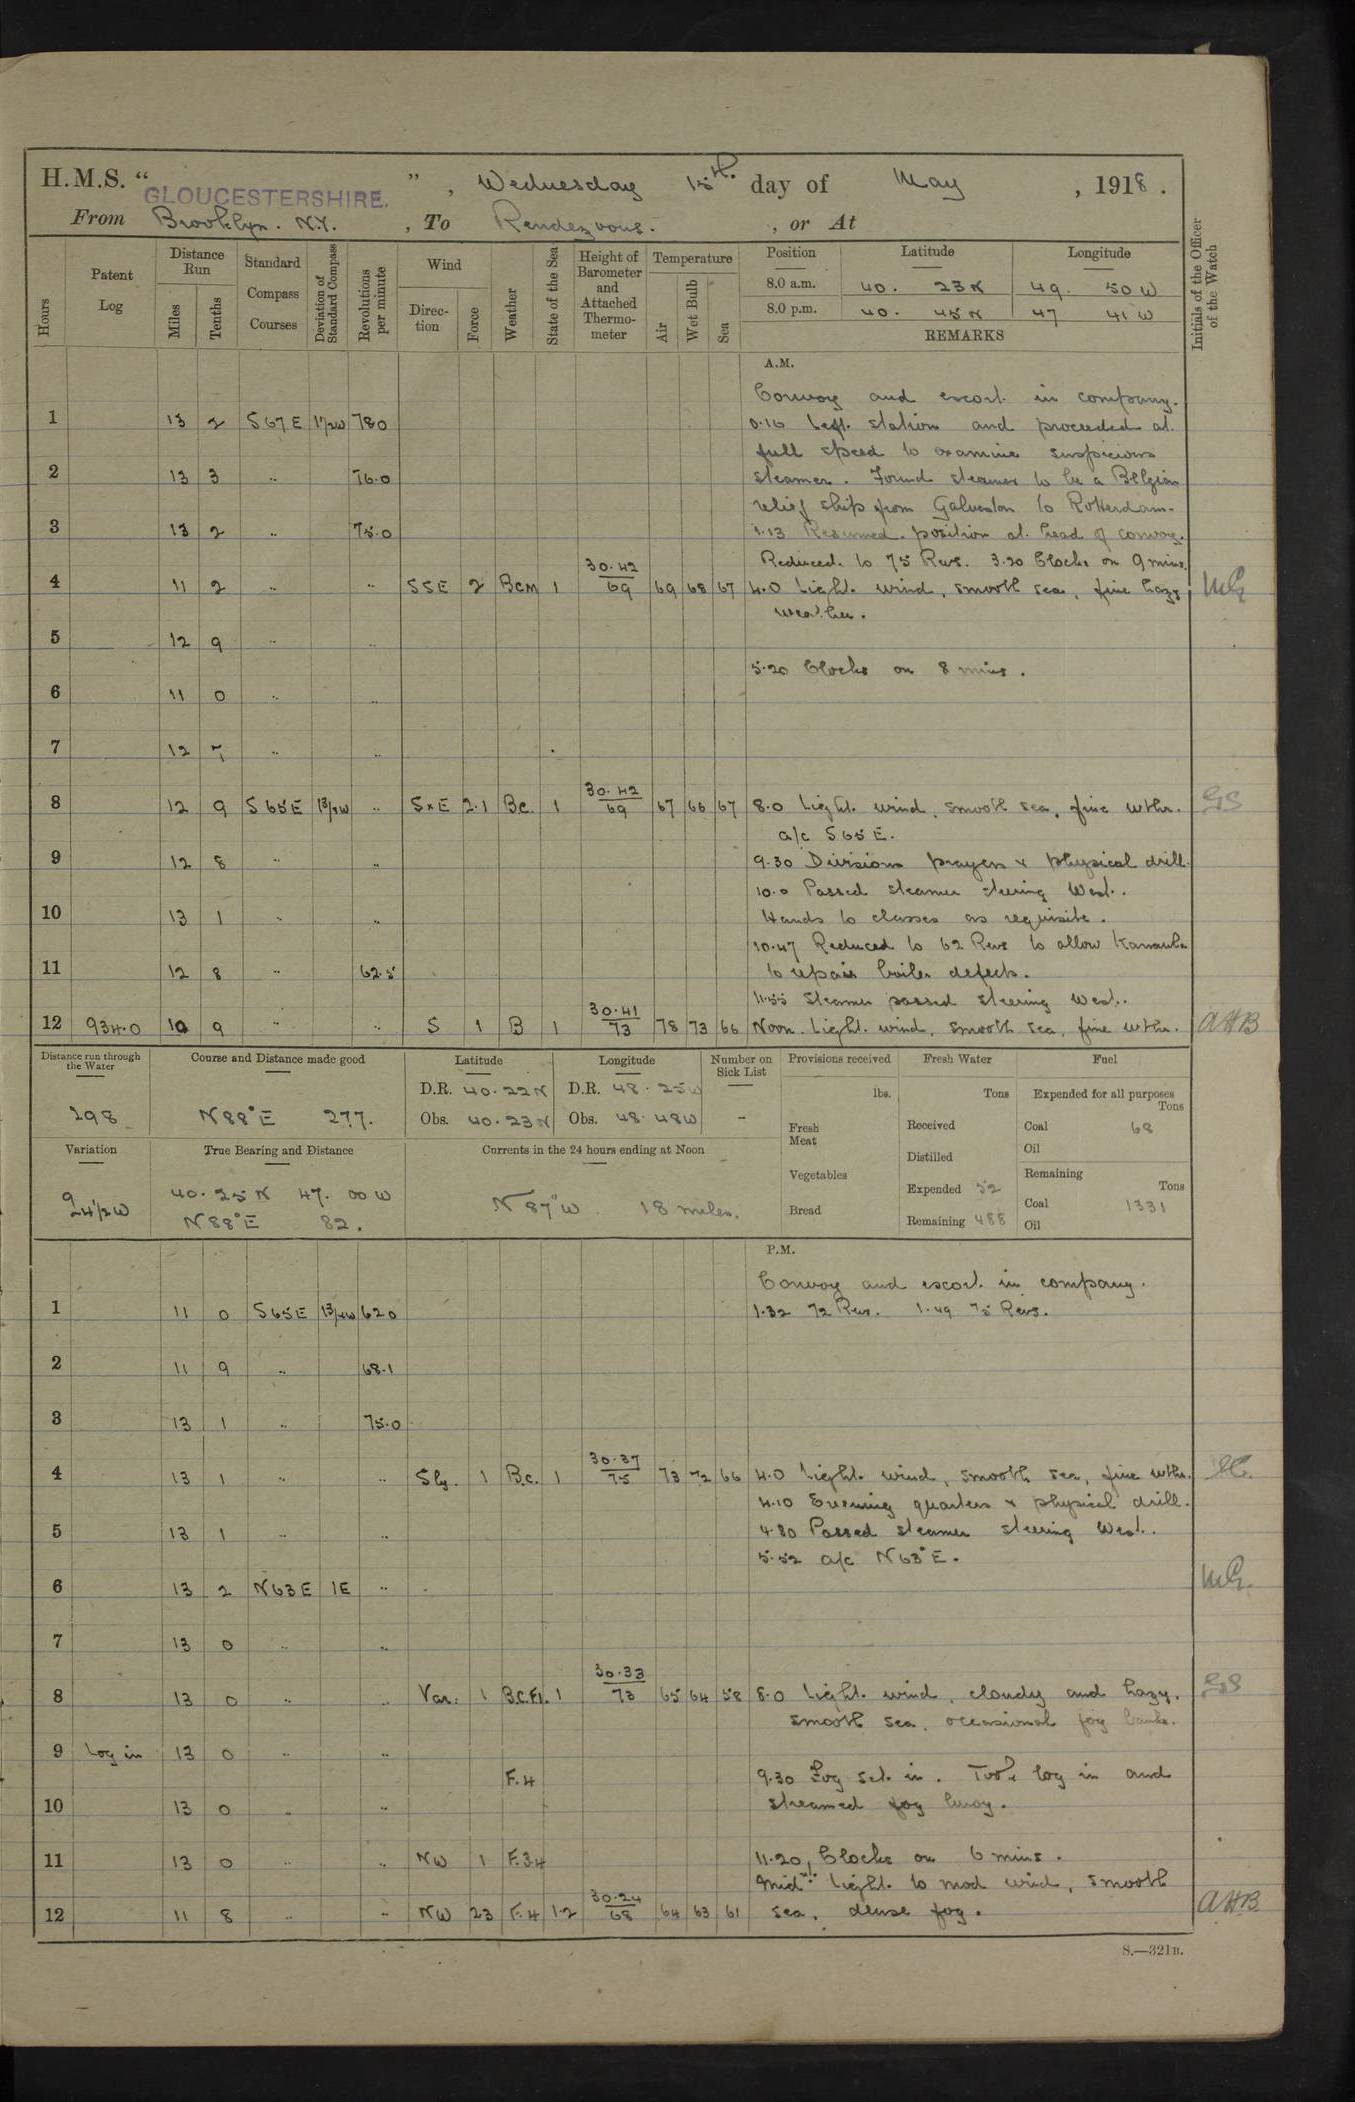 H.M.S. " GLOUCESTERSHIRE. " , Wednesday 15th. day of May , 1918 .
From Brooklyn. N.Y. , To Rendezvous. , or At
Hours Patent Log Distance Run Miles Tenths Standard Compass Courses Deviation of Standard Compass Revolutions per minute Wind Direction Force Weather State of the Sea Height of Barometer and Attached Thermometer Temperature Air Wet Bulb Sea Position Latitude Longitude Initials of the Officer of the Watch
8.0 a.m. 40. 23 N 49. 50 W
8.0 p.m. 40. 45 N 47 41 W
REMARKS
A.M.
Convoy and escort in company.
1 13 2 S 67 E 1½W 78.0 0.16 Left station and proceeded at
full speed to examine suspicious
2 13 3 .. 76.0 steamer. Found steamer to be a Belgian
relief ship from Galveston to Rotterdam.
3 13 2 .. 75.0 1.13 Resumed position at head of convoy.
Reduced to 75 Revs. 3.20 Clocks on 9 mins.
4 11 2 .. .. SSE 2 Bcm 1 30.42 69 69 68 67 4.0 Light wind, smooth sea, fine hazy
weather.
5 12 9 .. ..
5.20 Clocks on 8 mins.
6 11 0 .. ..
7 12 7 .. ..
8 12 9 S 65 E 1¾W .. SxE 2.1 Bc. 1 30.42 69 67 66 67 8.0 Light wind, smooth sea, fine wthr. GS
a/c S 65 E.
9 12 8 .. .. 9.30 Divisions prayers & physical drill.
10.0 Passed steamer steering West.
10 13 1 .. .. Hands to classes as requisite.
10.47 Reduced to 62 Revs to allow Kanawha
11 12 8 .. 62.5 to repair boiler defects.
11.55 Steamer passed steering West.
12 934.0 10 9 .. .. S 1 B 1 30.41 73 78 73 66 Noon. Light wind, smooth sea, fine wthr. AHB
Distance run through the Water Course and Distance made good Latitude Longitude Number on Sick List Provisions received Fresh Water Fuel
D.R. 40.22N D.R. 48.25W lbs. Tons Expended for all purposes Tons
298 N 88° E 277. Obs. 40.23N Obs. 48.48W - Fresh Meat Received Coal 68
Oil
Variation True Bearing and Distance Currents in the 24 hours ending at Noon Distilled
Vegetables Remaining Tons
24½W 40.25 N 47.00 W N 87° W 18 miles. Expended 52 Coal 1331
N 88° E 82. Bread Remaining 488 Oil
P.M.
Convoy and escort in company.
1 11 0 S 65 E 1¾W 62.0 1.32 72 Revs. 1.49 75 Revs.
2 11 9 .. 68.1
3 13 1 .. 75.0
4 13 1 .. .. Sly. 1 B.c. 1 30.37 75 73 72 66 4.0 Light wind, smooth sea, fine wthr.
4.10 Evening quarters & physical drill.
5 13 1 .. .. 4.30 Passed steamer steering West.
5.52 a/c N 63° E.
6 13 2 N 63 E 1E ..
7 13 0 .. ..
8 13 0 .. .. Var. 1 B.C.F. 1 30.33 73 65 64 58 8.0 Light wind, cloudy and hazy, GS
smooth sea, occasional fog banks.
9 Log in 13 0 .. ..
F.4 9.30 Fog set in. Took log in and
10 13 0 .. .. streamed fog buoy.
11 13 0 .. .. NW 1 F.3.4 11.20, Clocks on 6 mins.
Midt. Light to mod wind, smooth
12 11 8 .. .. NW 2.3 F.4 1.2 30.24 68 64 63 61 sea, dense fog. AHB
S.—321B.